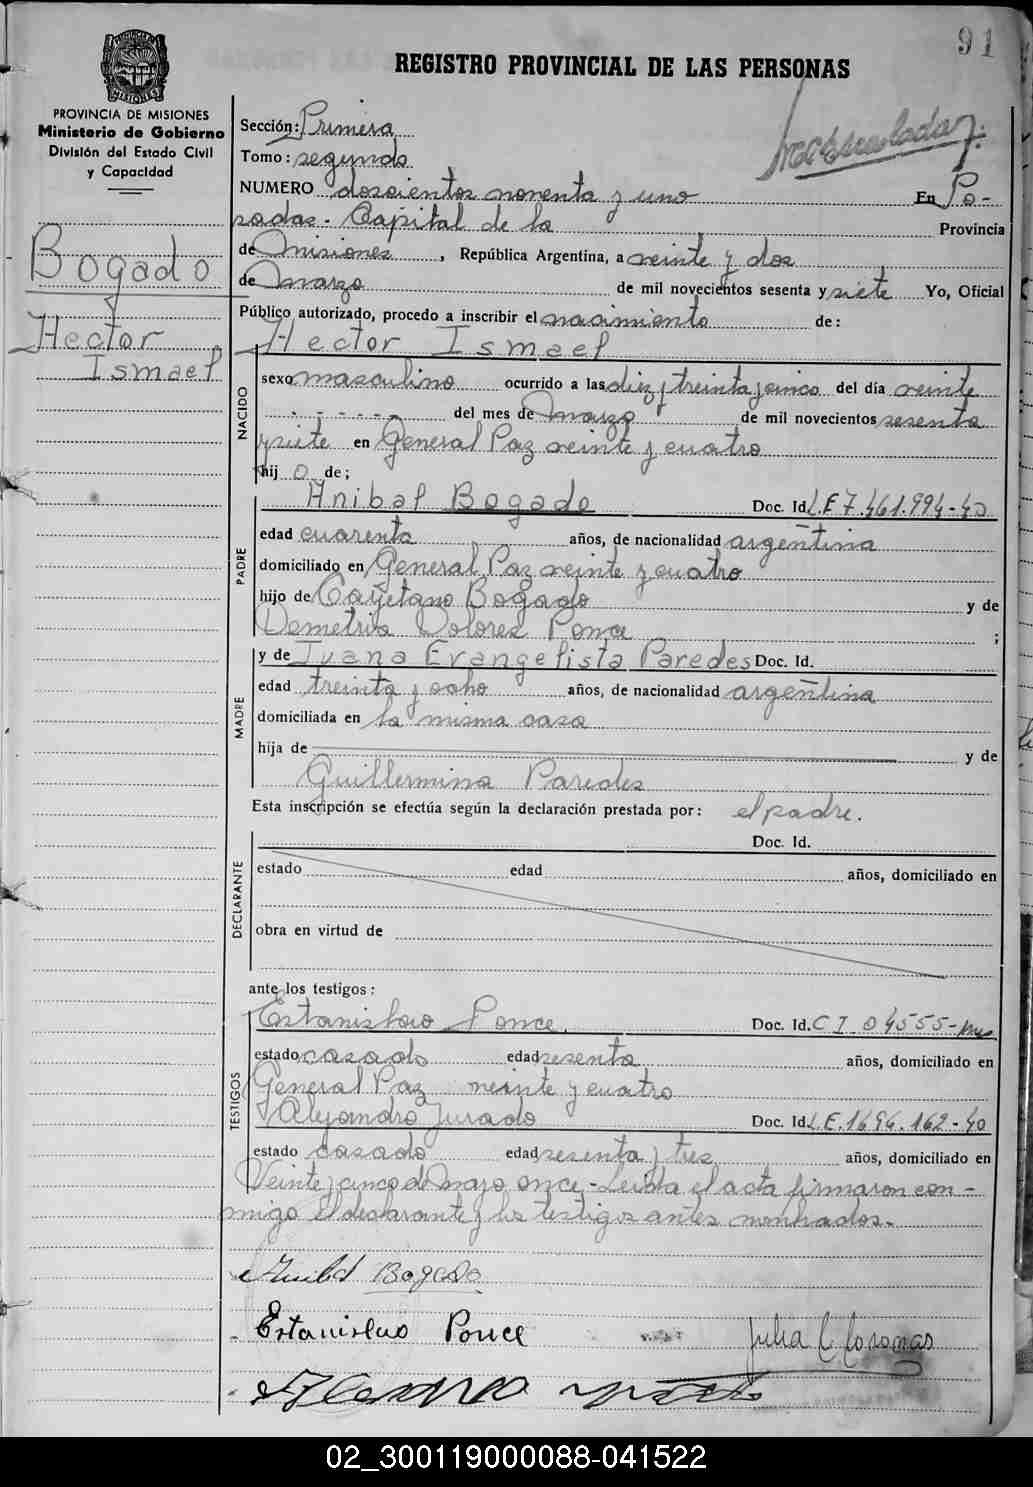 91
REGISTRO PROVINCIAL DE LAS PERSONAS
PROVINCIA DE MISIONES
Ministerio de Gobierno
División del Estado Civil
y Capacidad
Bogado
Hector
Ismael
Sección: Primera
Tomo: segundo
NUMERO doscientos noventa y uno En Po-
sadas - Capital de la Provincia
de Misiones, República Argentina, a veinte y dos
de Marzo de mil novecientos sesenta y siete Yo, Oficial
Público autorizado, procedo a inscribir el nacimiento de:
Hector Ismael
NACIDO
sexo masculino ocurrido a las diez y treinta y cinco del día veinte
- - - - - del mes de Marzo de mil novecientos sesenta
y siete en General Paz veinte y cuatro
hijo de;
PADRE
Anibal Bogado Doc. Id. L.E 7.461.994-40
edad cuarenta años, de nacionalidad argentina
domiciliado en General Paz veinte y cuatro
hijo de Cayetano Bogado y de
Demetria Dolores Ponce ;
MADRE
y de Juana Evangelista Paredes Doc. Id.
edad treinta y ocho años, de nacionalidad argentina
domiciliada en la misma casa
hija de y de
Guillermina Paredes
Esta inscripción se efectúa según la declaración prestada por: el padre.
DECLARANTE
Doc. Id.
estado edad años, domiciliado en
obra en virtud de
ante los testigos:
TESTIGOS
Estanislao Ponce Doc. Id. C I. 04555-
estado casado edad sesenta años, domiciliado en
General Paz veinte y cuatro
y Alejandro Jurado Doc. Id. L.E. 1696.162-40
estado casado edad sesenta y tres años, domiciliado en
Veinte y cinco de Mayo once - Leida el acta firmaron con-
migo el declarante y los testigos antes nombrados.
Anibal Bogado
Estanislao Ponce
Julia
02_300119000088-041522